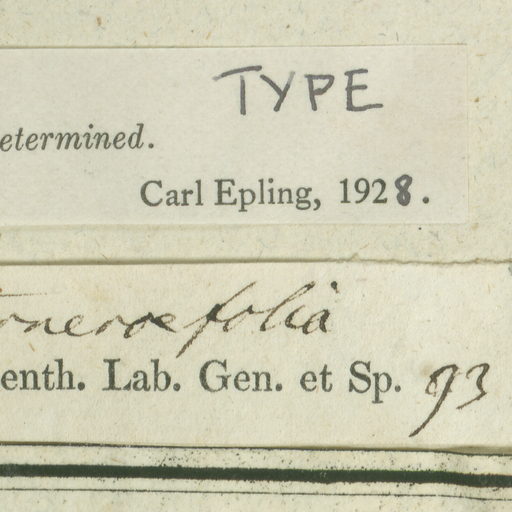 TYPE
etermined.
Carl Epling, 1928.
enth. Lab. Gen. et Sp. 93